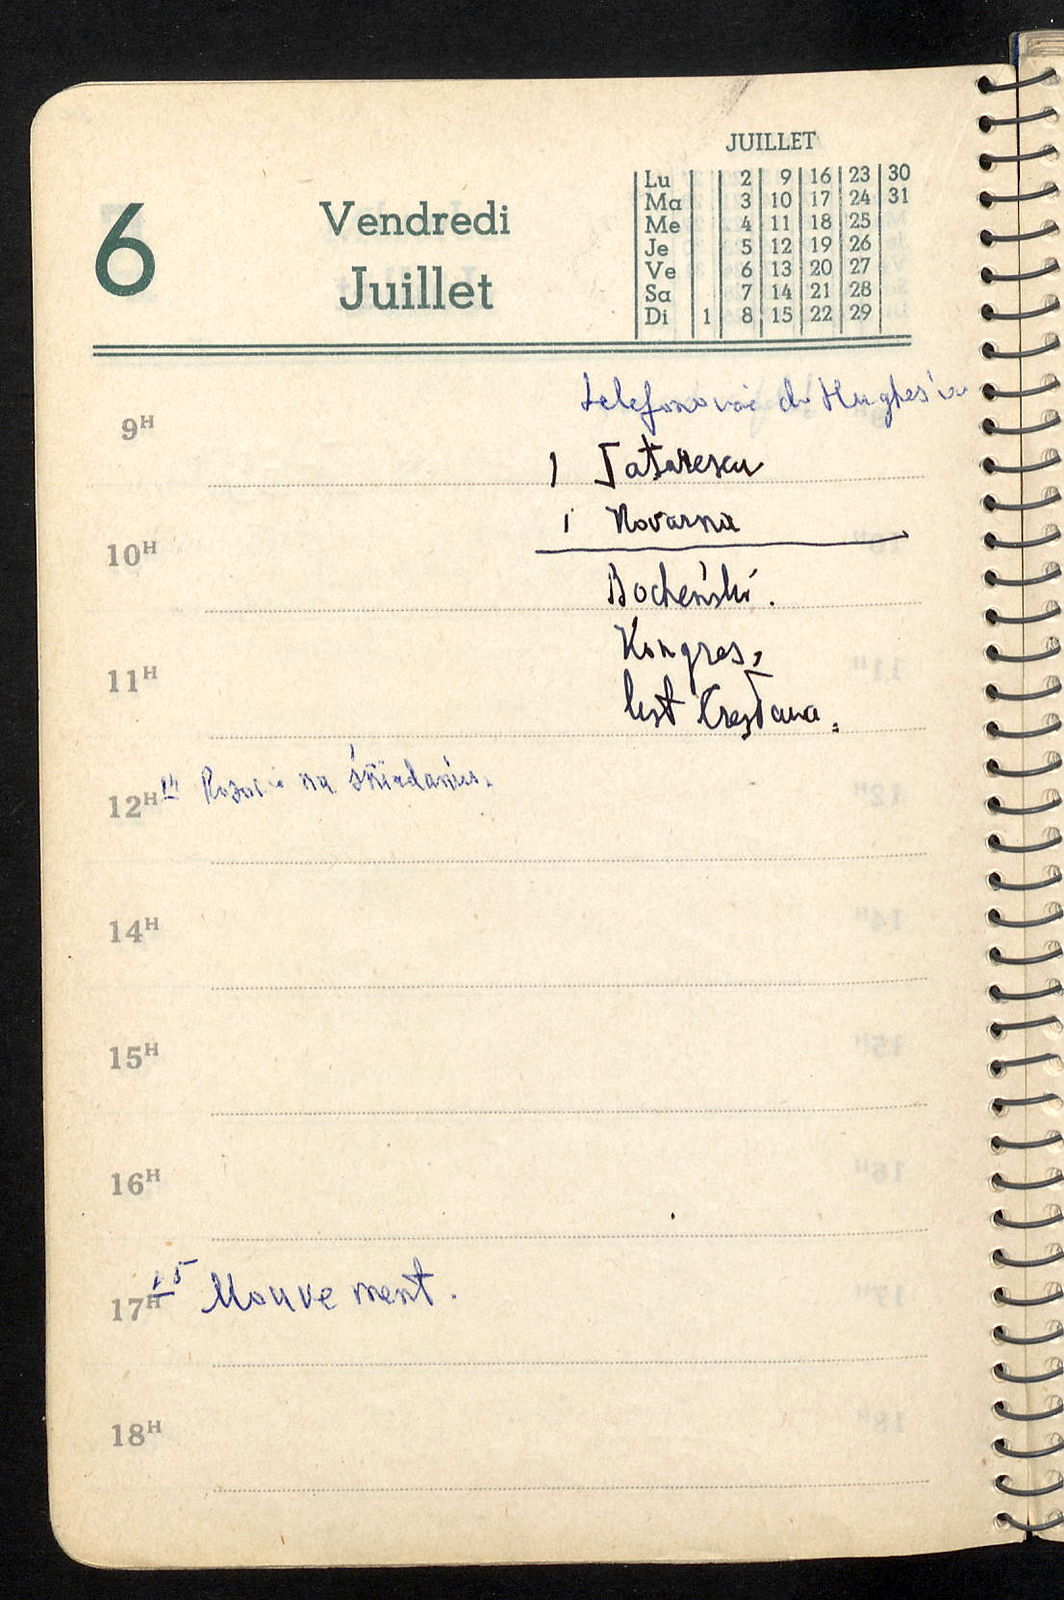 JUILLET
Lu 2 9 16 23 30
Ma 3 10 17 24 31
Me 4 11 18 25
Je 5 12 19 26
Ve 6 13 20 27
Sa 7 14 21 28
Di 1 8 15 22 29
6 Vendredi
Juillet
telefonować do Hughes'a
9H
1 Tatarescu
1 Novarna
10H
Bocheński.
Kongres,
11H
list
12H na śniadanie.
14H
15H
16H
17H 15 Mouvement.
18H